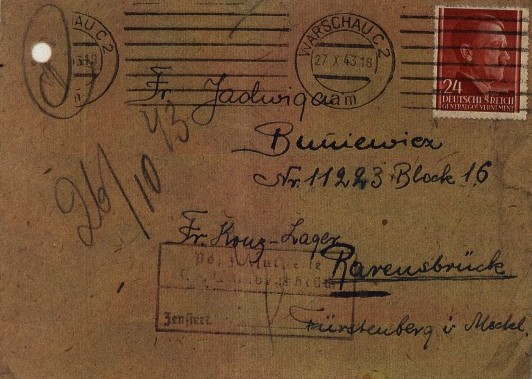 WARSCHAU C 2
27 X 43.18
am
24
DEUTSCHES REICH
GENERALGOUVERNEMENT
Fr. Jadwiga
Buniewicz
Nr. 11223 Block 16
26/10 43
Fr Konz-Lager
Ravensbrück
Fürstenberg i. Meckl.
Zensiert